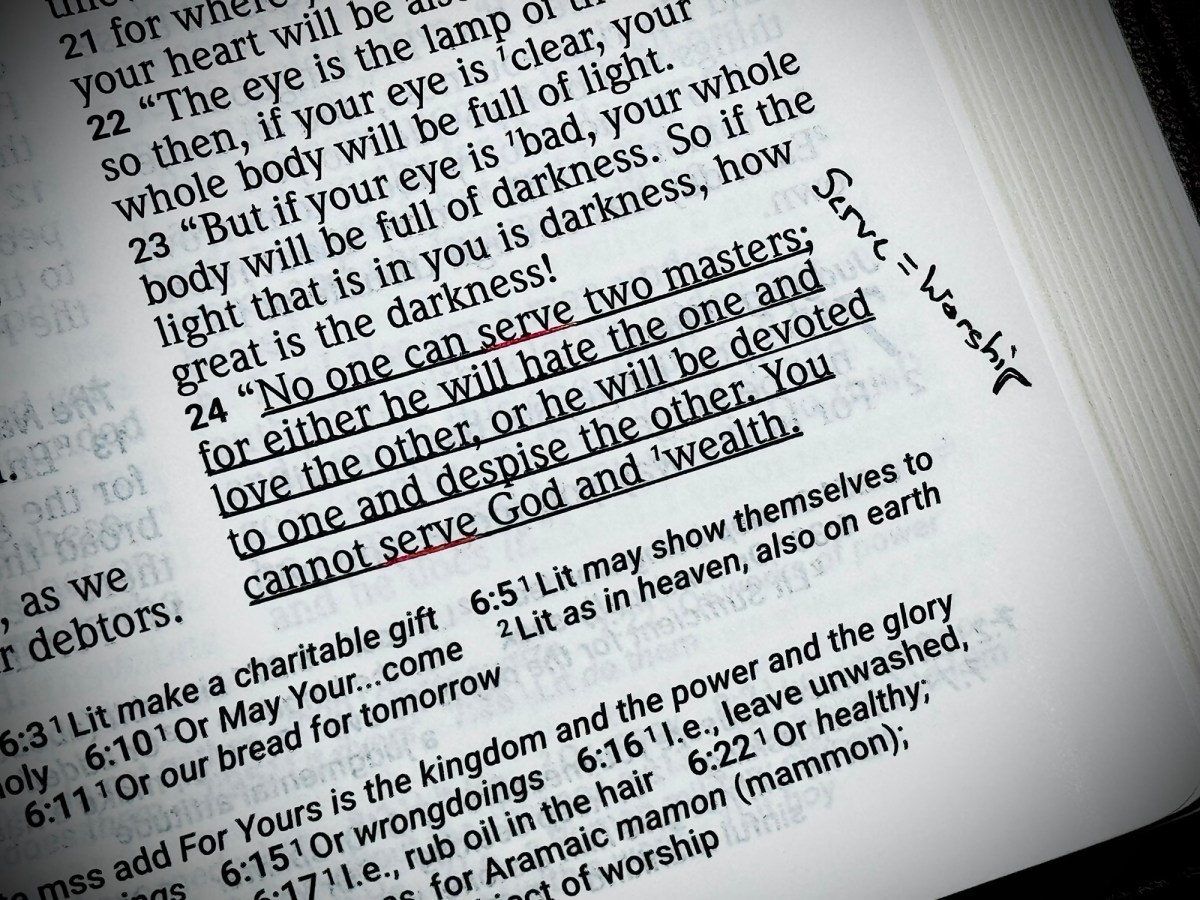 21 for where
your heart will be
22 “The eye is the lamp of
so then, if your eye is ¹clear, your
whole body will be full of light.
23 “But if your eye is ¹bad, your whole
body will be full of darkness. So if the
light that is in you is darkness, how
great is the darkness!
24 “No one can serve two masters;
for either he will hate the one and
love the other, or he will be devoted
to one and despise the other. You
cannot serve God and ¹wealth.
Serve = Worship
, as we
debtors.
6:3 ¹Lit make a charitable gift 6:5 ¹Lit may show themselves to
6:10 ¹Or May Your...come ²Lit as in heaven, also on earth
6:11 ¹Or our bread for tomorrow
mss add For Yours is the kingdom and the power and the glory
6:15 ¹Or wrongdoings 6:16 ¹I.e., leave unwashed,
6:17 ¹I.e., rub oil in the hair 6:22 ¹Or healthy;
for Aramaic mamon (mammon);
of worship